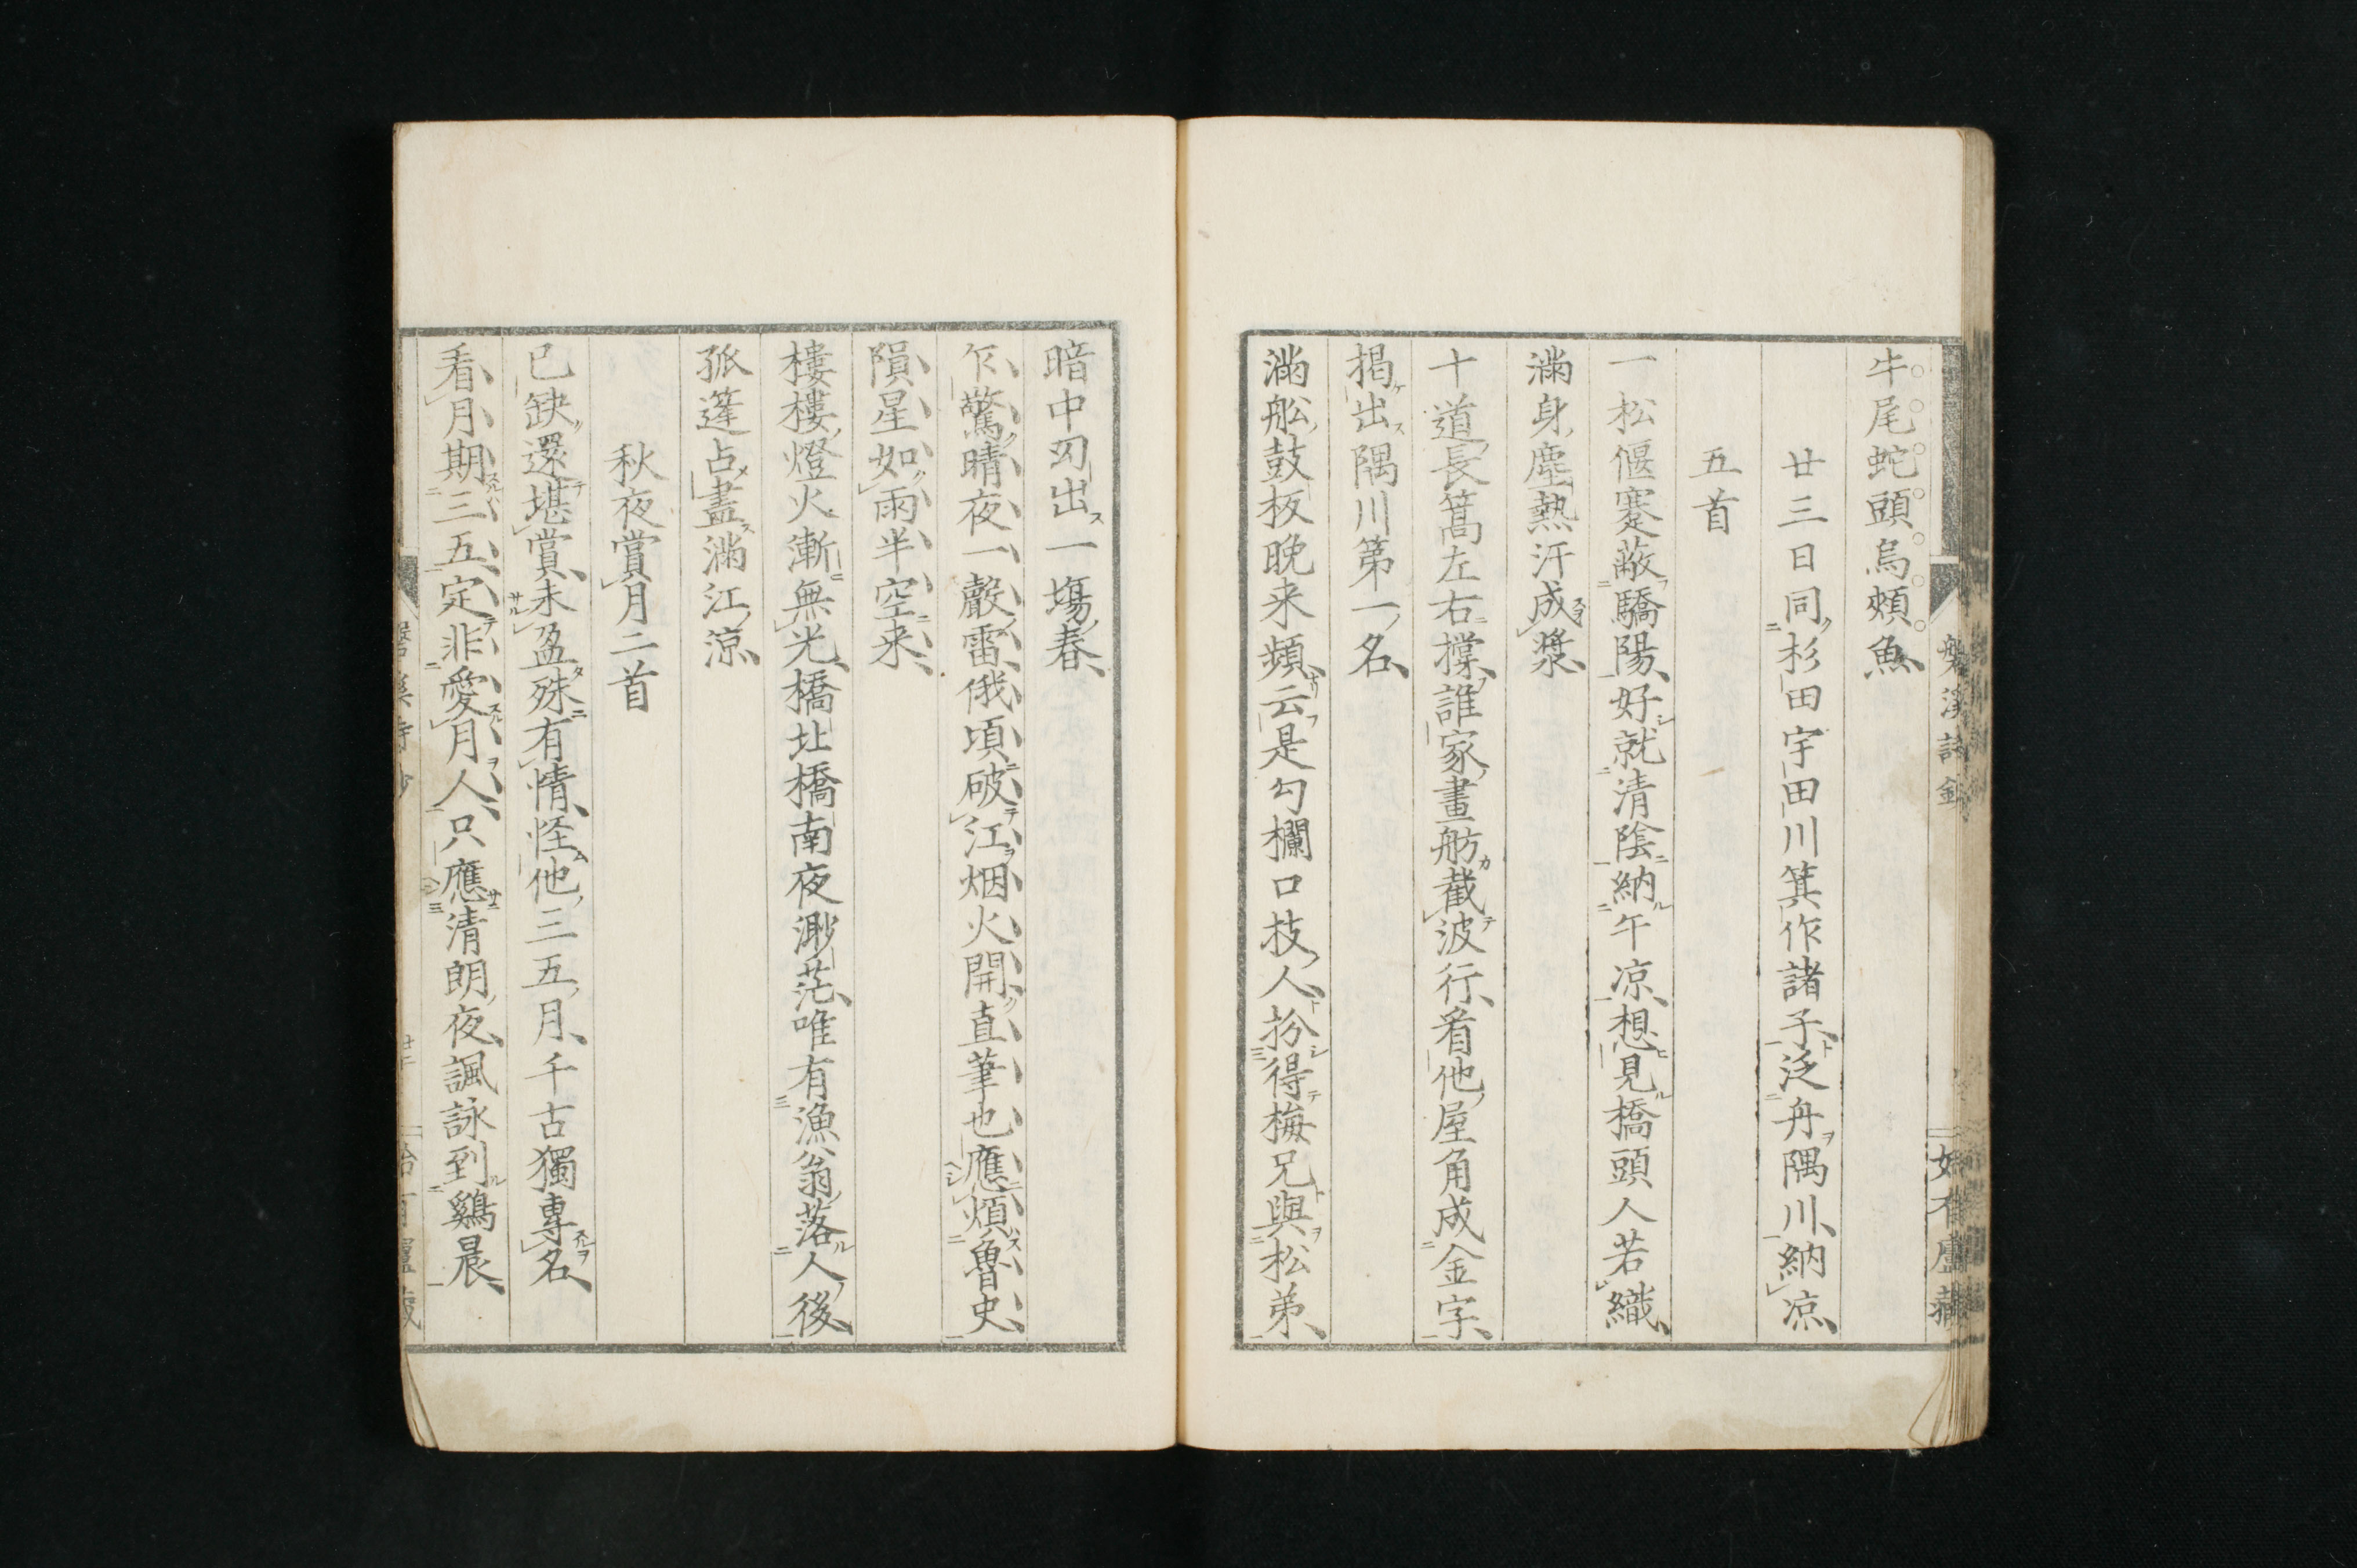 牛尾蛇頭烏頰魚
廿三日同杉田宇田川箕作諸子泛舟隅川納凉
五首
一松偃蹇蔽驕陽好就清陰納午凉想見橋頭人若織
滿身塵熱汗成漿
十道長篙左右撑誰家畫舫截波行看他屋角成金字
揭出隅川第一名
滿舩鼓板晚来頻云是勾欄口技人扮得梅兄與松弟
暗中刃出一塲春
乍驚晴夜一聲雷俄頃破江烟火開直筆也應煩魯史
隕星如雨半空来
樓樓燈火漸無光橋北橋南夜渺茫唯有漁翁落人後
孤篷占盡滿江涼
秋夜賞月二首
已缺還堪賞未盈殊有情怪他三五月千古獨專名
看月期三五定非愛月人只應清朗夜諷詠到鷄晨